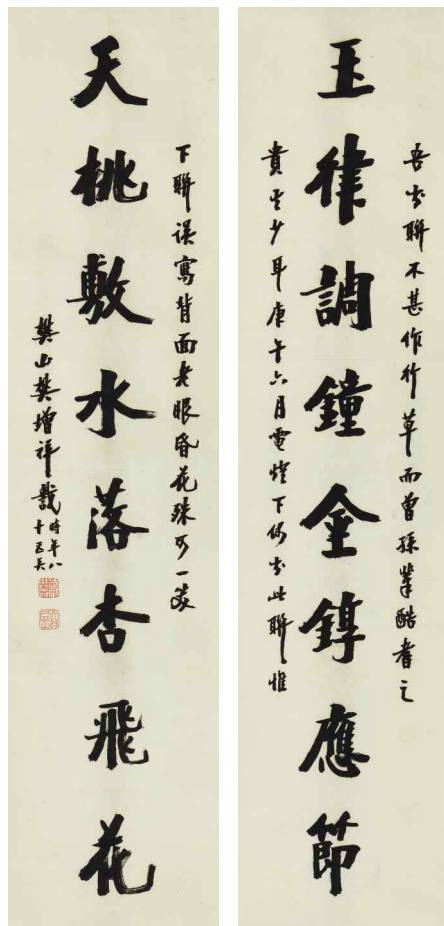 玉律調鐘金錞應節
吾書聯不甚作行草而曾孫輩酷耆之
貴其少耳庚午六月電燈下偶書此聯惟
夭桃敷水落杏飛花
下聯誤寫背面老眼昏花殊可一笑
樊山樊增祥識
時年八
十五矣